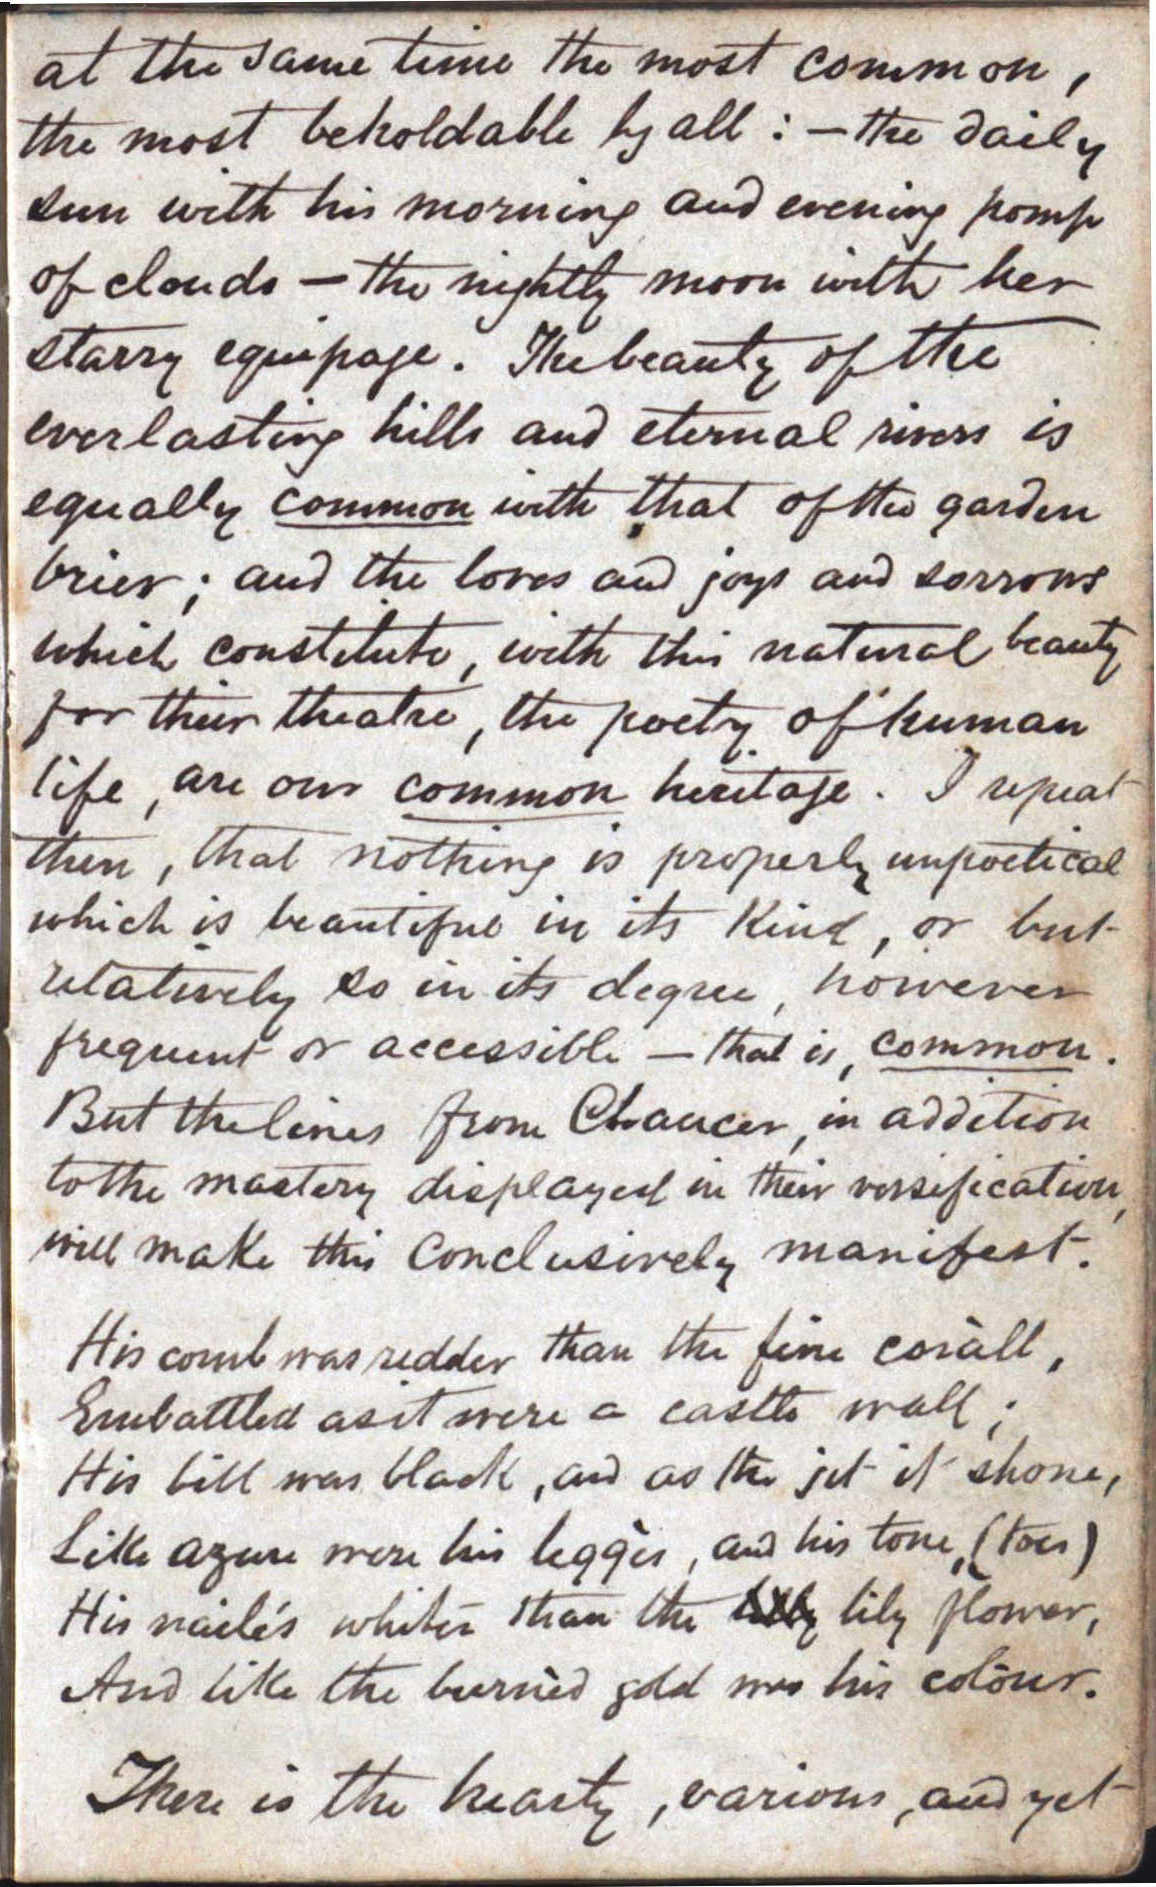 at the same time the most common,
the most beholdable by all : — the daily
sun with his morning and evening pomp
of clouds — the nightly moon with her
starry equipage. The beauty of the
everlasting hills and eternal rivers is
equally common with that of the garden
brier; and the loves and joys and sorrows
which constitute, with this natural beauty
for their theatre, the poety of human
life, are our common heritage. I repeat
then, that nothing is properly unpoetical
which is beautiful in its kind, or but
relatively so in its degree, however
frequent or accessible — that is, common.
But the lines from Chaucer, in addition
to the mastery displayed in their versification,
will make this conclusively manifest.
His comb was redder than the fine coràll,
Embattled as it were a castle wall;
His bill was black, and as the jet it shone,
Like azure were his leggès, and his tone, (toes)
His nailés whiter than the lily flower,
And like the burnèd gold was his colòur.
There is the hearty, various, and yet